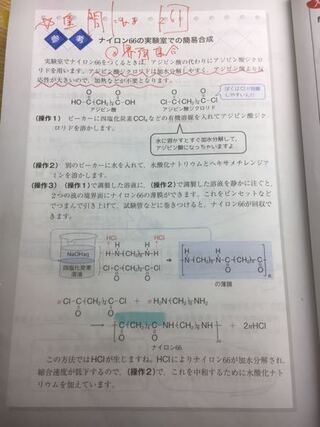 参 考
ナイロン66の実験室での簡易合成
②界面重合
実験室でナイロン66をつくるときは、アジピン酸の代わりにアジピン酸ジクロ
リドを用います。アジピン酸ジクロリドは加水分解しやすく、アジピン酸よりも反
応性が大きいので、加熱などが不要となります。
HO-C-(CH₂)₄-C-OH
O O
アジピン酸
Cl-C-(CH₂)₄-C-Cl
O O
アジピン酸ジクロリド
(操作1) ビーカーに四塩化炭素CCl₄などの有機溶媒を入れてアジピン酸ジク
ロリドを溶かします。
水に溶かすとすぐ加水分解して、
アジピン酸になっちゃいますよ
(操作2) 別のビーカーに水を入れて、水酸化ナトリウムとヘキサメチレンジア
ミンを溶かします。
(操作3) (操作1)で調製した溶液に、(操作2)で調製した溶液を静かに注ぐと、
2つの液の境界面にナイロン66の薄膜ができます。これをピンセットなど
でつまんで引き上げて、試験管などに巻きつけると、ナイロン66が回収で
きます。
HCl HCl
NaOHaq
四塩化炭素
溶液
H H
H-N-(CH₂)₆-N-H
Cl-C-(CH₂)₄-C-Cl
O O
H H
N-(CH₂)₆-N-C-(CH₂)₄-C
O O n
の薄膜
nCl-C-(CH₂)₄-C-Cl + nH₂N-(CH₂)₆-NH₂
O O
→ [C-(CH₂)₄-C-NH-(CH₂)₆-NH]n + 2nHCl
O O
ナイロン66
この方法ではHClが生じますね。HClによりナイロン66が加水分解され、
総合速度が低下するので、(操作2)で、これを中和するために水酸化ナト
リウムを加えています。